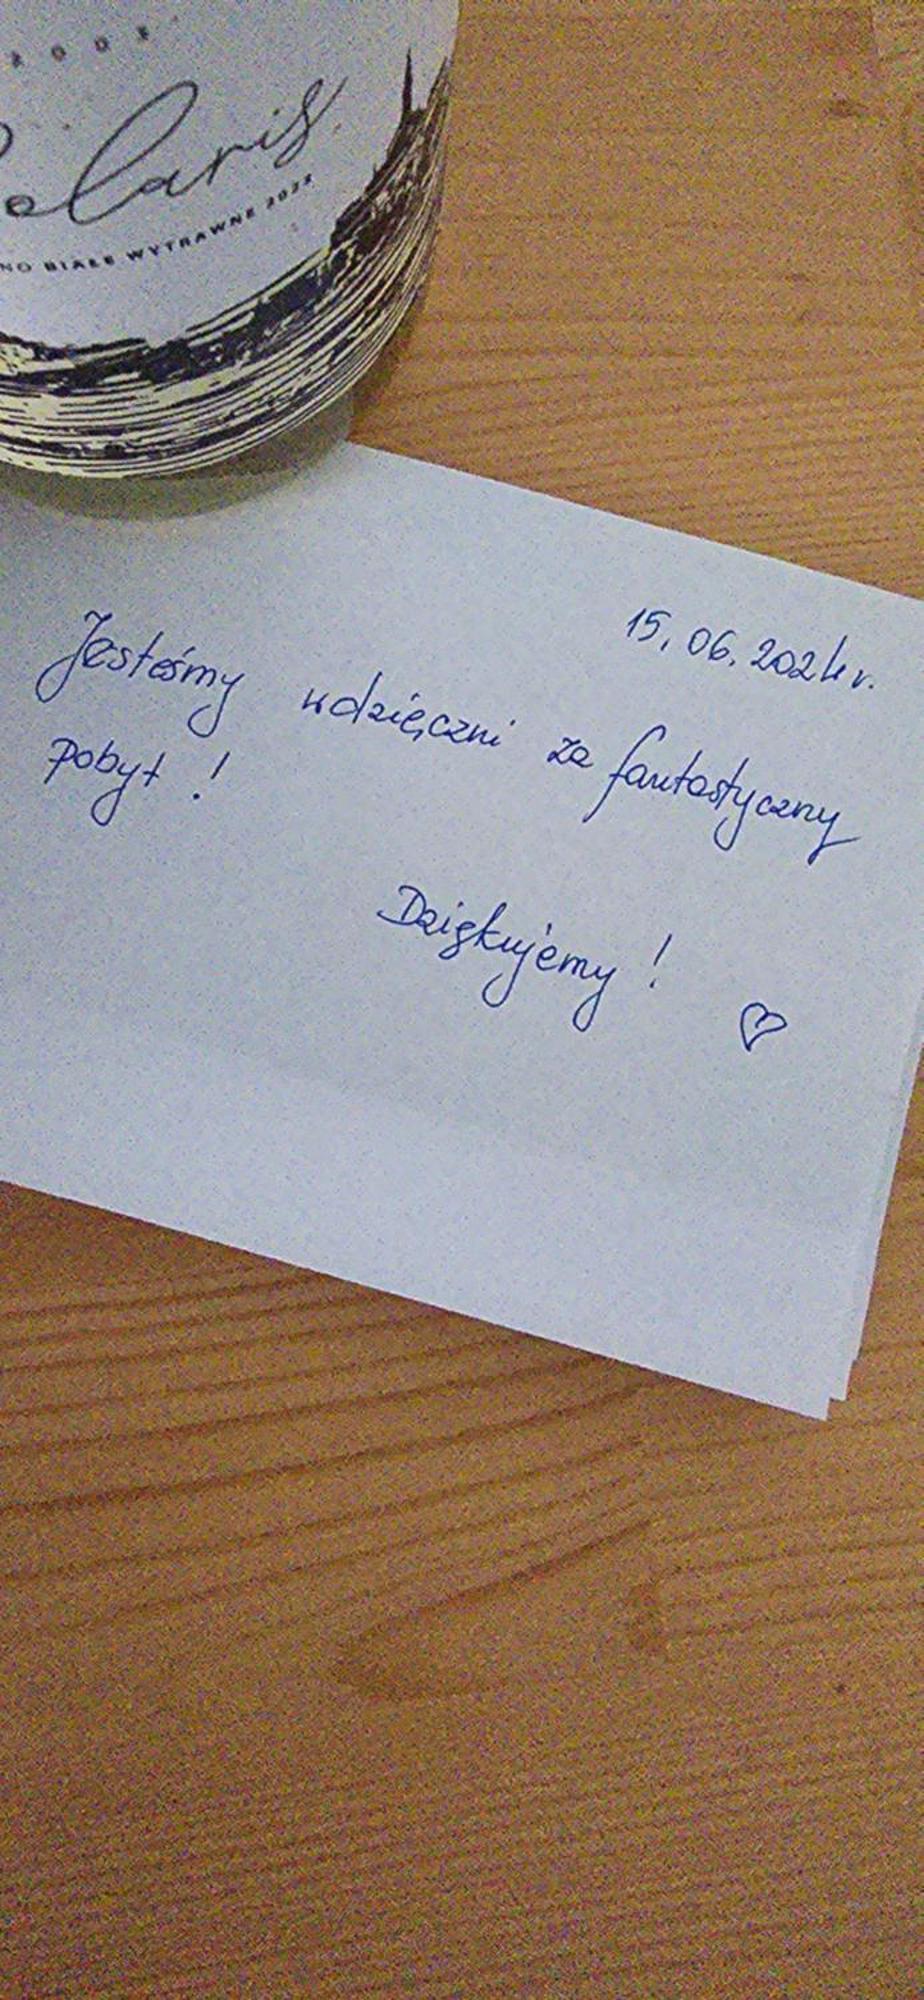 2008
Polaris
NO BIAŁE WYTRAWNE 2022
15.06.2024r.
Jesteśmy wdzięczni za fantastyczny
pobyt !
Dziękujemy !